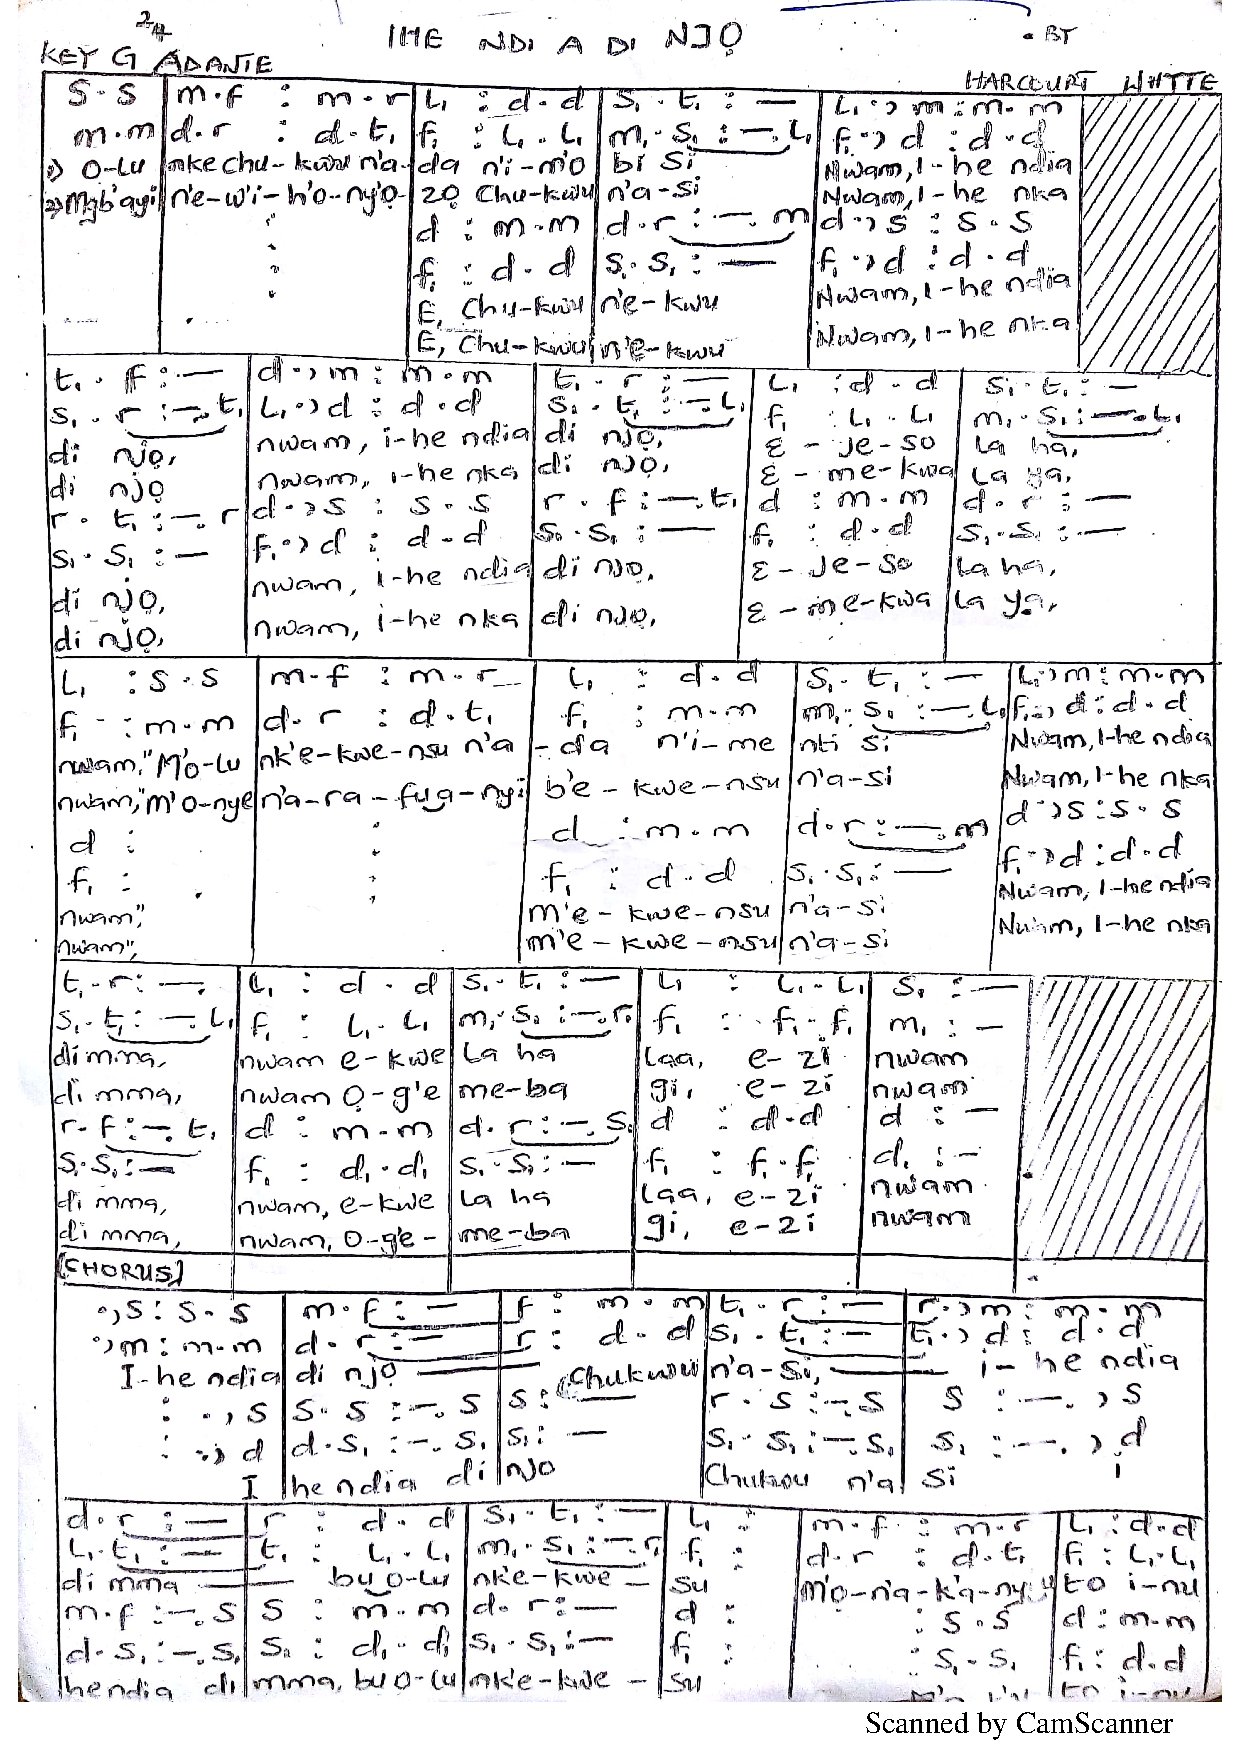 2/4
IHE NDI A DI NJỌ
. BY
KEY G ADANTE
HARCOURT WHYTE
S . S | m . f : m . r | L₁ : d . d | S₁ . t₁ : — | L₁ ., m : m . m
m . m | d . r : d . t₁ | f₁ : L₁ . L₁ | m₁ . S₁ : — . L₁ | f₁ ., d : d . d
1) O-lu | nke chu-kwu n'a- | da n'i-m'o | bi si | Nwam, I-he ndia
2) Mgb'ayi | n'e-w'i-h'o-nyo- | zọ Chu-kwu | n'a-si | Nwam, I-he nka
d : m . m | d . r : — . m | d ., s : s . s
f₁ : d . d | S₁ . S₁ : — | f₁ ., d : d . d
E, Chu-kwu | n'e-kwu | Nwam, I-he ndia
E, Chu-kwu | n'e-kwu | Nwam, I-he nka
t₁ . f : — | d ., m : m . m | t₁ . r : — | L₁ : d . d | S₁ . t₁ : —
S₁ . r : — . t₁ | L₁ ., d : d . d | S₁ . t₁ : — . L₁ | f₁ : L₁ . L₁ | m₁ . S₁ : — . L₁
di njọ, | nwam, i-he ndia | di njọ, | E - je-so | La ha,
di njọ | nwam, i-he nka | di njọ, | E - me-kwa | La ya,
r . t₁ : — . r | d ., s : s . s | r . f : — . t₁ | d : m . m | d . r : —
S₁ . S₁ : — | f₁ ., d : d . d | S₁ . S₁ : — | f₁ : d . d | S₁ . S₁ : —
di njọ, | nwam, i-he ndia | di njọ, | E - je-so | La ha,
di njọ, | nwam, i-he nka | di njọ, | E - me-kwa | La ya,
L₁ : s . s | m . f : m . r | L₁ : d . d | S₁ . t₁ : — | L₁ ., m : m . m
f₁ : m . m | d . r : d . t₁ | f₁ : m . m | m₁ . S₁ : — . L₁ | f₁ ., d : d . d
nwam," M'o-lu | nk'e-kwe-nsu n'a | -da n'i-me | nti si | Nwam, I-he ndia
nwam," m'o-nye | n'a-ra-fu a-nyi | b'e-kwe-nsu | n'a-si | Nwam, I-he nka
d : | d : m . m | d . r : — . m | d ., s : s . s
f₁ : | f₁ : d . d | S₁ . S₁ : — | f₁ ., d : d . d
nwam", | m'e-kwe-nsu | n'a-si | Nwam, I-he ndia
nwam", | m'e-kwe-nsu | n'a-si | Nwam, I-he nka
t₁ . r : — . | L₁ : d . d | S₁ . t₁ : — | L₁ : L₁ . L₁ | S₁ : —
S₁ . t₁ : — . L₁ | f₁ : L₁ . L₁ | m₁ . S₁ : — . r₁ | f₁ : f₁ . f₁ | m₁ : —
di mma, | nwam e-kwe | La ha | Laa, e-zi | nwam
di mma, | nwam Ọ-g'e | me-ba | gi, e-zi | nwam
r . f : — . t₁ | d : m . m | d . r : — . S₁ | d : d . d | d : —
S₁ . S₁ : — | f₁ : d₁ . d₁ | S₁ . S₁ : — | f₁ : f₁ . f₁ | d₁ : —
di mma, | nwam, e-kwe | La ha | Laa, e-zi | nwam
di mma, | nwam, O-g'e- | me-ba | gi, e-zi | nwam
[CHORUS]
., s : s . s | m . f : — | f : m . m | t₁ . r : — | r ., m : m . m
., m : m . m | d . r : — | r : d . d | S₁ . t₁ : — | t₁ ., d : d . d
I-he ndia | di njọ — | Chukwu | n'a-si, — | i-he ndia
: ., s | s . s : — . s | s : — | r . s : — . s | s : — . , s
: ., d | d . S₁ : — . S₁ | S₁ : — | S₁ . S₁ : — . S₁ | S₁ : — . , d
I | he ndia di | njo | Chukwu n'a | si i
d . r : — | r : d . d | S₁ . t₁ : — | L₁ : | m . f : m . r | L₁ : d . d
L₁ . t₁ : — | t₁ : L₁ . L₁ | m₁ . S₁ : — . r₁ | f₁ : | d . r : d . t₁ | f₁ : L₁ . L₁
di mma — | — bu o-lu | nk'e-kwe - | su | m'o-n'a-k'a-ny | to i-nu
m . f : — . s | s : m . m | d . r : — | d : | : s . s | d : m . m
d . S₁ : — . S₁ | S₁ : d₁ . d₁ | S₁ . S₁ : — | f₁ : | : S₁ . S₁ | f₁ : d . d
he ndia di | mma, bu o-lu | nk'e-kwe - | su | to i-nu
Scanned by CamScanner